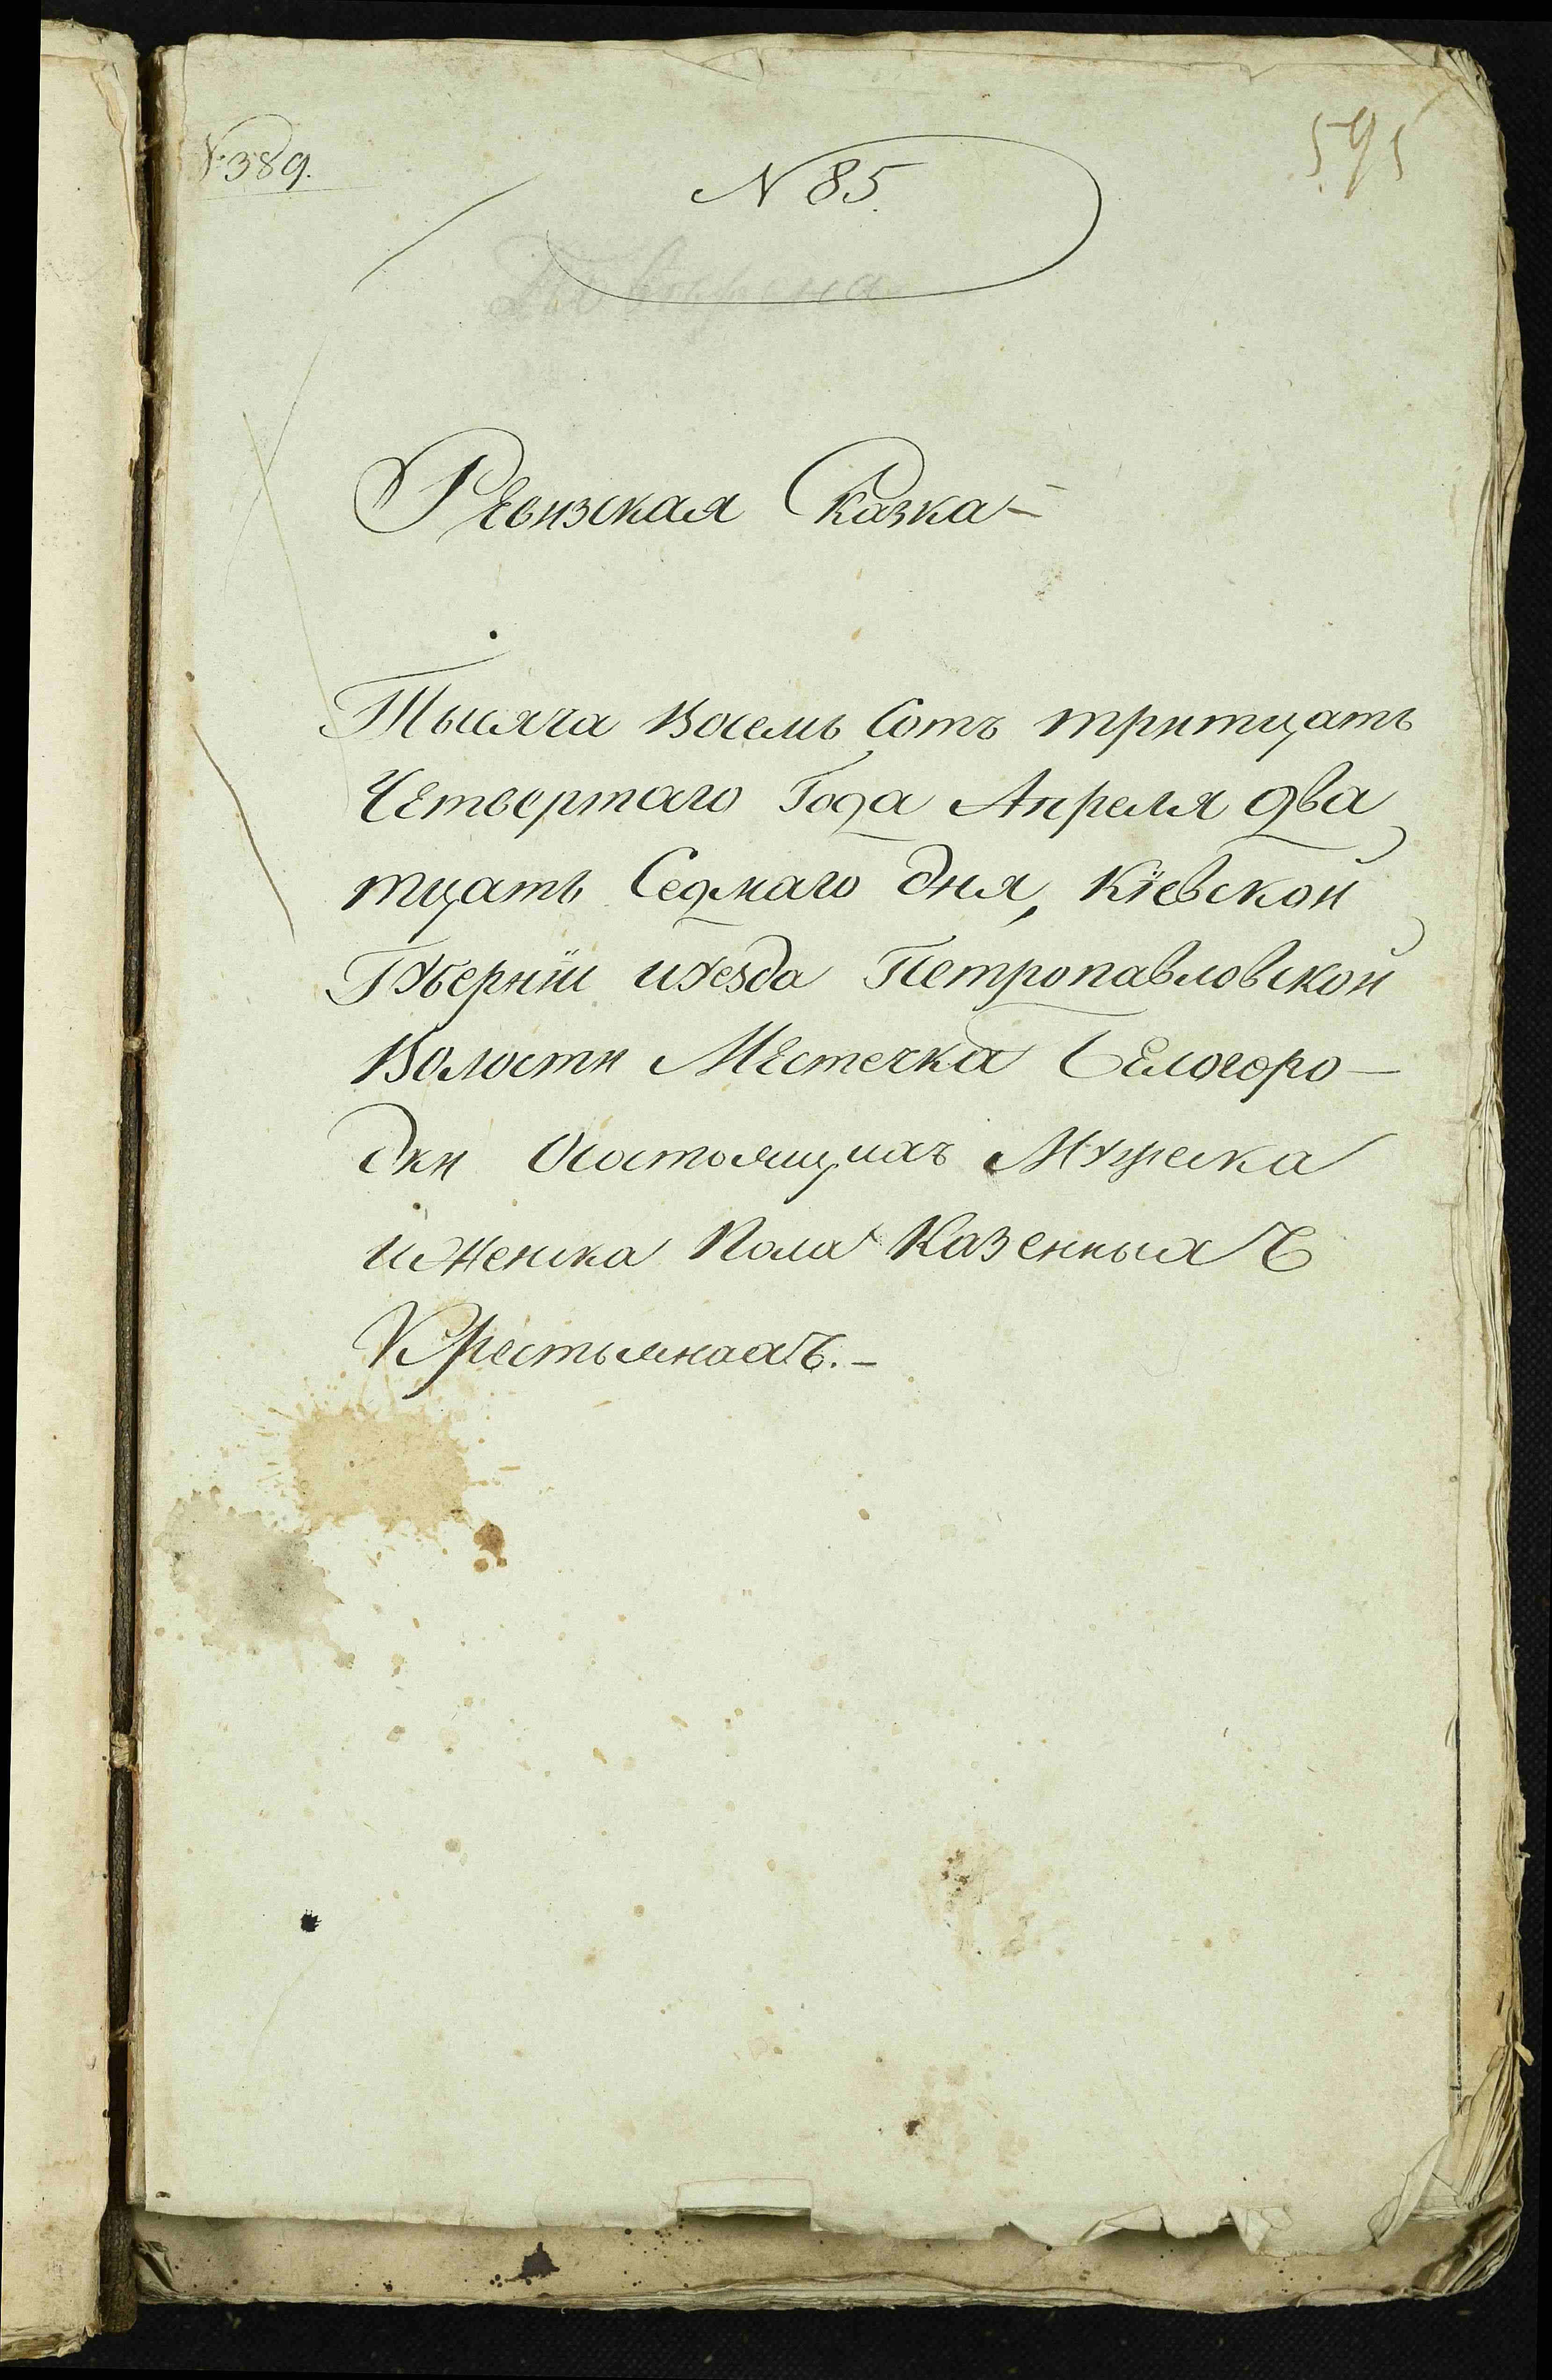 № 389.
N 85.
595
Ревизская Сказка
Тысяча Восемь Сотъ тритцать
Четвертаго Года Апреля два
тцать Седмаго дня, Кіевской
Губернїи иуезда Петропавловской
Волости Местечка Белогоро-
дки Осостоящихъ Мужеска
иженска Пола Казенныхъ
Крестьянахъ.-